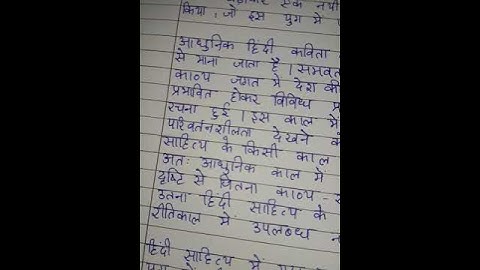 किया, जो इस युग में
आधुनिक हिंदी कविता
से माना जाता है। समवत
काव्य जगत मे देश की
प्रभावित होकर विविध
रचना हुई। इस काल में
परिवर्तनशीलता देखने
साहित्य के किसी काल
अतः आधुनिक काल में
दृष्टि से जितना काव्य -
उतना हिंदी साहित्य के
रीतिकाल में उपलब्ध
हिंदी साहित्य में